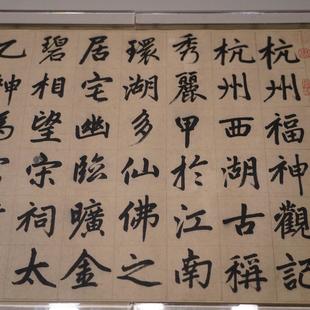 杭州福神觀記
杭州西湖古稱
秀麗甲於江南
環湖多仙佛之
居宅幽臨曠金
碧相望宋祠太
乙神為